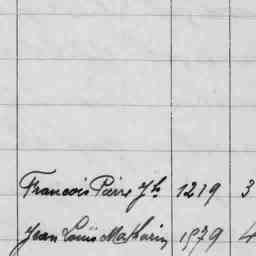 Francois Pierre Jh 1219 3
Jean Louis Mathurin 1979 4